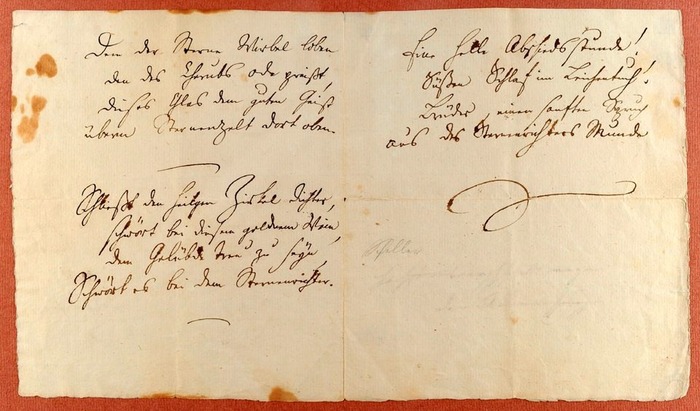 Den der Sterne Wirbel loben
den des Seraphs Ode preißt,
dieses Glas dem guten Geist
überm Sternenzelt dort oben.
Schließt den heilgen Zirkel dichter,
schwört bei diesem goldnen Wein,
dem Gelübde treu zu seyn,
Schwört es bei dem Sternenrichter.
Eine helle Abschiedsstunde!
Süßen Schlaf im Leichentuch!
Brüder, einen sanften Spruch
aus des Sternenrichters Munde
Schiller